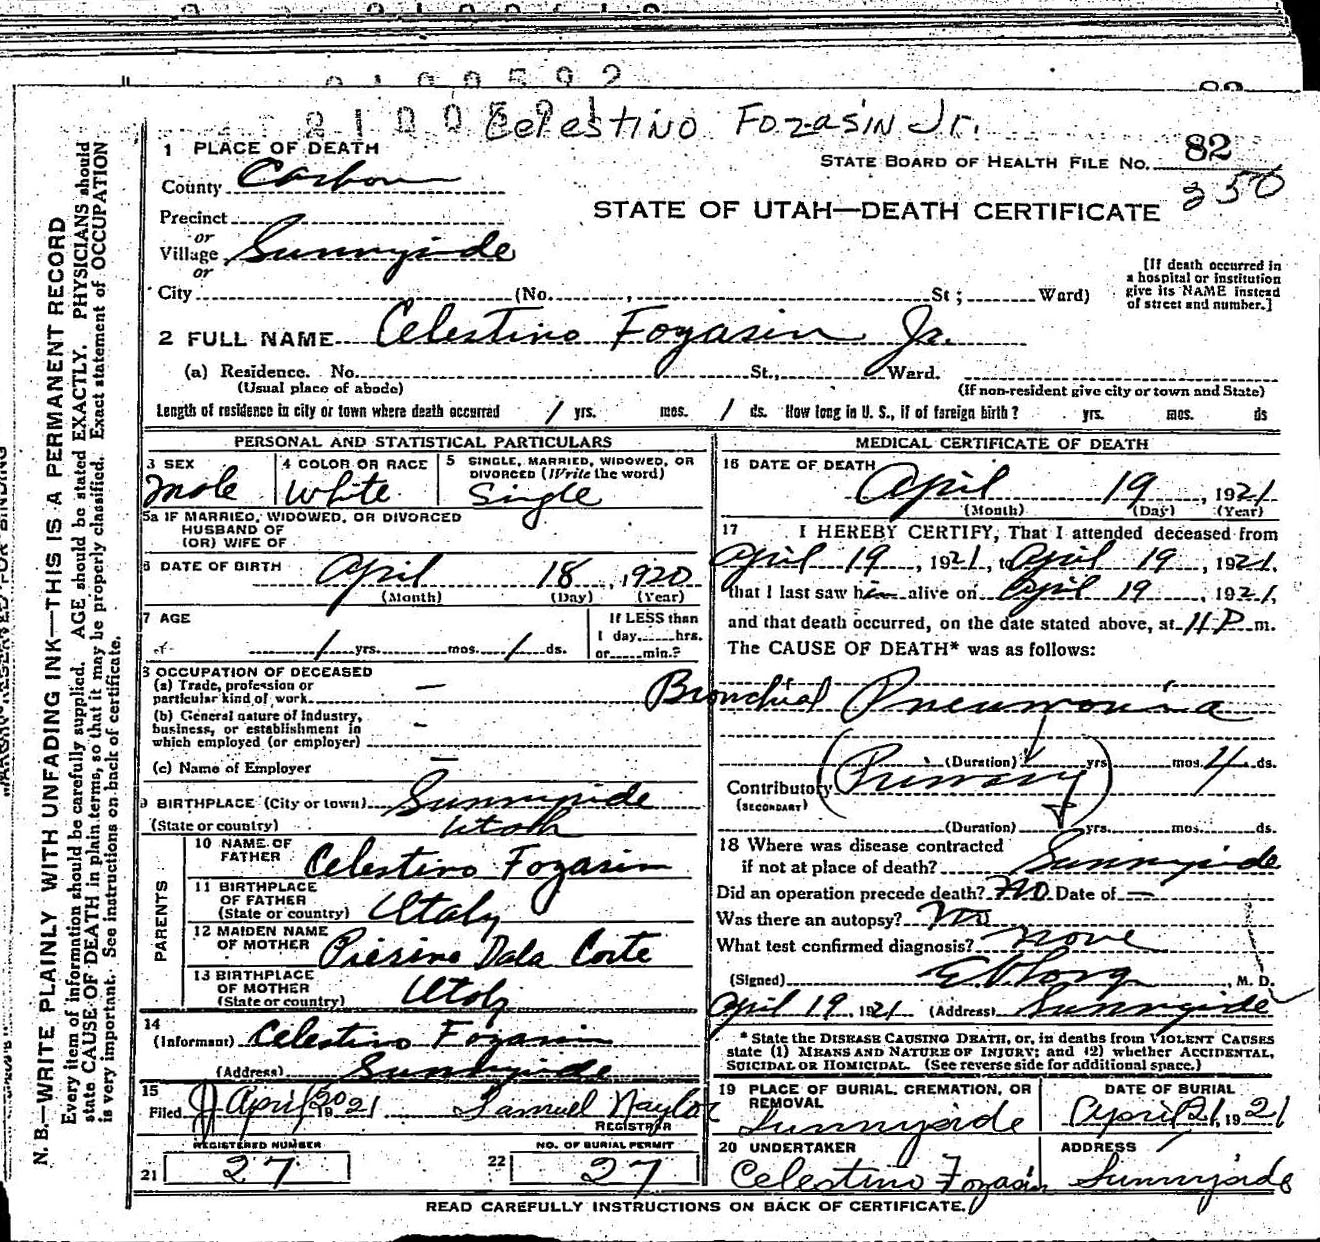 2100592
82
210059 1 Celestino Fozasin Jr.
1 PLACE OF DEATH
STATE BOARD OF HEALTH FILE NO. 82
County Carbon
250
Precinct
STATE OF UTAH—DEATH CERTIFICATE
or
Village Sunnyside
or
[If death occurred in a hospital or institution give its NAME instead of street and number.]
City (No. , St; Ward)
2 FULL NAME Celestino Fozasin Jr.
(a) Residence. No. St., Ward.
(Usual place of abode) (If non-resident give city or town and State)
Length of residence in city or town where death occurred 1 yrs. mos. 1 ds. How long in U. S., if of foreign birth? yrs. mos. ds
PERSONAL AND STATISTICAL PARTICULARS
3 SEX Male
4 COLOR OR RACE White
5 SINGLE, MARRIED, WIDOWED, OR DIVORCED (Write the word) Single
5a IF MARRIED, WIDOWED, OR DIVORCED
HUSBAND OF
(OR) WIFE OF
6 DATE OF BIRTH April 18, 1920
(Month) (Day) (Year)
7 AGE
1 yrs. mos. 1 ds.
If LESS than
1 day, hrs.
or min.?
8 OCCUPATION OF DECEASED
(a) Trade, profession or
particular kind of work —
(b) General nature of Industry,
business, or establishment in
which employed (or employer) -
(c) Name of Employer —
9 BIRTHPLACE (City or town) Sunnyside
(State or country) Utah
PARENTS
10 NAME OF FATHER Celestino Fozasin
11 BIRTHPLACE OF FATHER (State or country) Italy
12 MAIDEN NAME OF MOTHER Piesino Dala Corte
13 BIRTHPLACE OF MOTHER (State or country) Italy
14
(Informant) Celestino Fozasin
(Address) Sunnyside
15
Filed April 20 1921 Samuel Naylor
REGISTRAR
REGISTERED NUMBER
21 27
NO. OF BURIAL PERMIT
22 27
MEDICAL CERTIFICATE OF DEATH
16 DATE OF DEATH
April 19, 1921
(Month) (Day) (Year)
17 I HEREBY CERTIFY, That I attended deceased from
April 19, 1921, to April 19, 1921,
that I last saw him alive on April 19, 1921,
and that death occurred, on the date stated above, at 4 P m.
The CAUSE OF DEATH* was as follows:
Bronchial Pneumonia
(Duration) yrs. mos. 4 ds.
Contributory (Primary)
(SECONDARY)
(Duration) yrs. mos. ds.
18 Where was disease contracted
if not at place of death? Sunnyside
Did an operation precede death? No Date of —
Was there an autopsy? No
What test confirmed diagnosis? None
(Signed) M. D.
April 19 1921 (Address) Sunnyside
* State the DISEASE CAUSING DEATH, or, in deaths from VIOLENT CAUSES
state (1) MEANS AND NATURE OF INJURY; and (2) whether ACCIDENTAL,
SUICIDAL OR HOMICIDAL. (See reverse side for additional space.)
19 PLACE OF BURIAL, CREMATION, OR REMOVAL
Sunnyside
DATE OF BURIAL
April 21, 1921
20 UNDERTAKER
Celestino Fozasin
ADDRESS
Sunnyside
READ CAREFULLY INSTRUCTIONS ON BACK OF CERTIFICATE.
N. B.—WRITE PLAINLY WITH UNFADING INK—THIS IS A PERMANENT RECORD
Every item of information should be carefully supplied. AGE should be stated EXACTLY. PHYSICIANS should
state CAUSE OF DEATH in plain terms, so that it may be properly classified. Exact statement of OCCUPATION
is very important. See instructions on back of certificate.